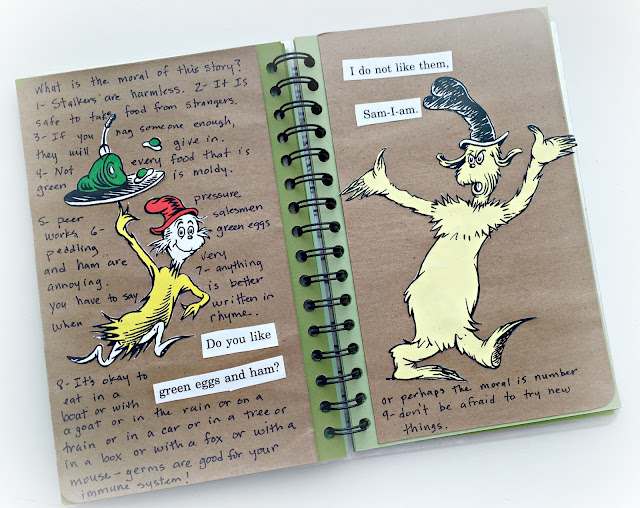 What is the moral of this story?
1- Stalkers are harmless. 2- It Is
safe to take food from strangers.
3- If you nag someone enough,
they will give in.
4- Not every food that is
green is moldy.
5- peer pressure
works. 6- salesmen
peddling green eggs
and ham are very
annoying. 7- anything
you have to say is better
when written in
rhyme..
Do you like
green eggs and ham?
8- It's okay to
eat in a
boat or with
a goat or in the rain or on a
train or in a car or in a tree or
in a box or with a fox or with a
mouse - germs are good for your
immune system!
I do not like them,
Sam-I-am.
or perhaps the moral is number
9- don't be afraid to try new
things.